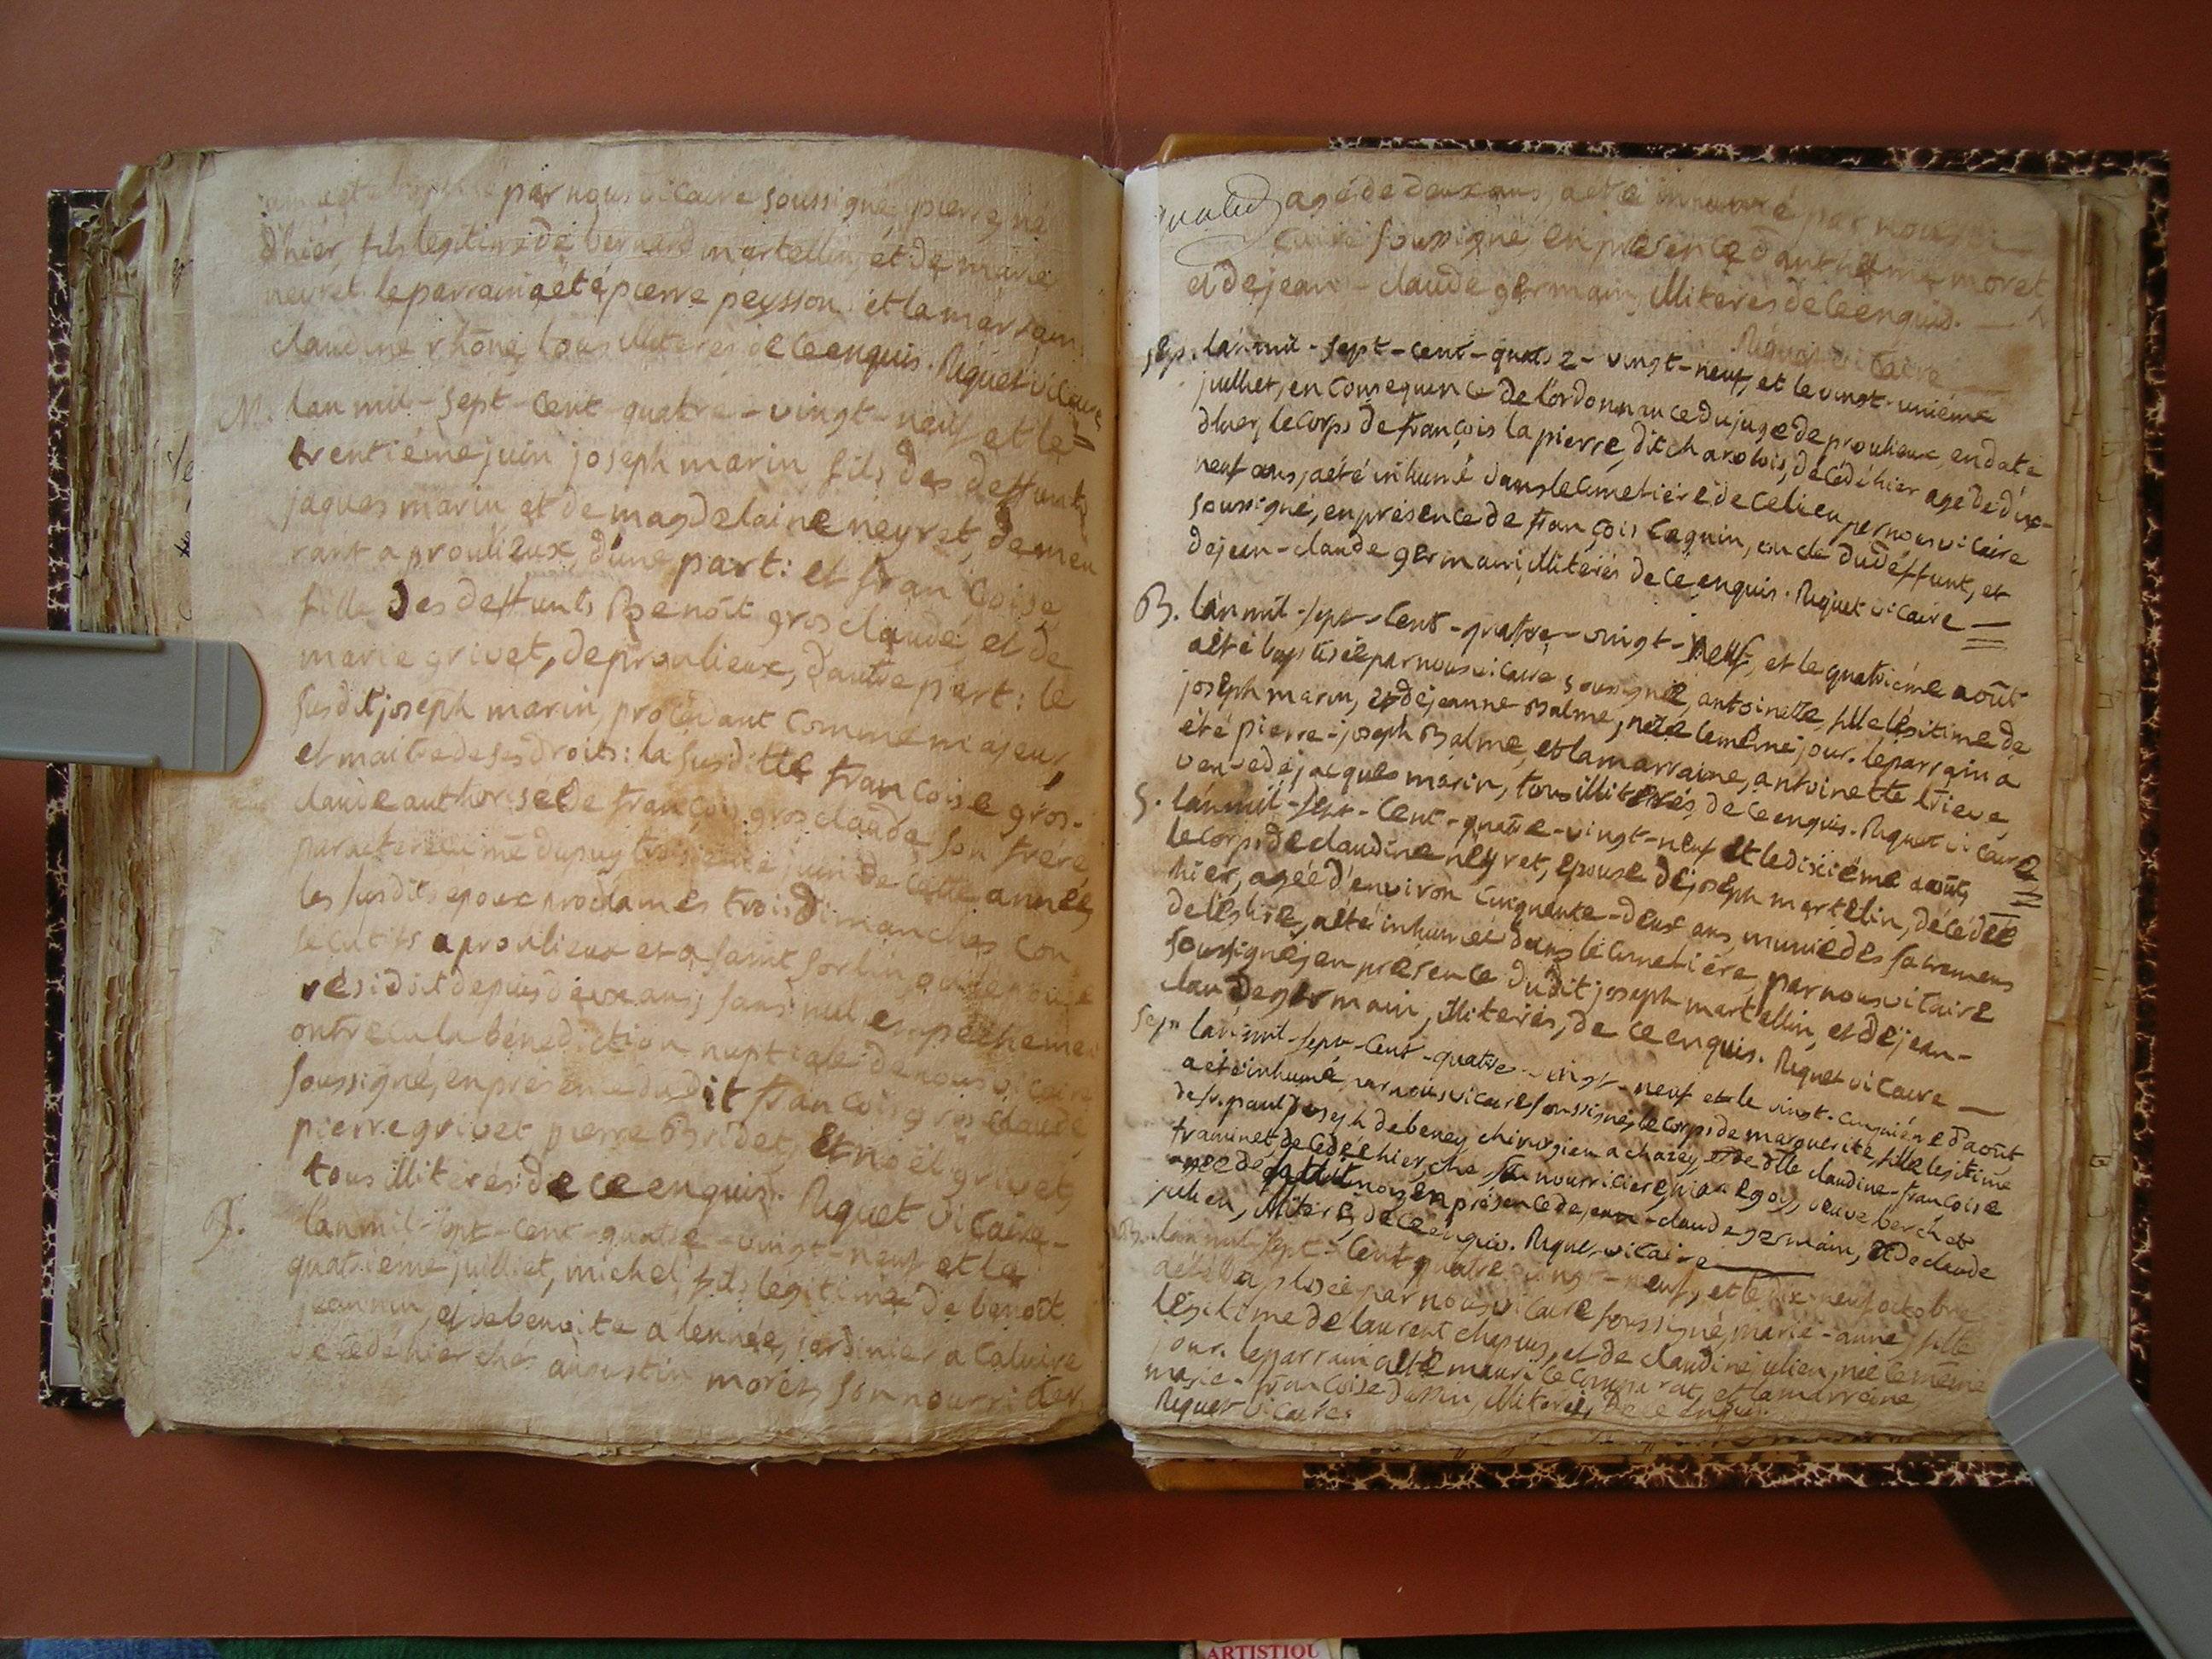 par nous vicaire soussigné, pierre, né
d'hier, fils legitime de bernard martellin, et de marie
neyret. le parrain a été pierre peysson et la marraine
claudine rhône, tous illiterés de ce enquis. Riquet vicaire
M. lan mil-sept-cent-quatre-vingt-neuf et le
trentiéme juin joseph marin fils des deffunts
jaques marin et de magdelaine neyret, demeu
rant a proulieux, d'une part: et françoise
fille des deffunts Benoît grosclaude, et de
marie grivet, de proulieux, d'autre part: le
susdit joseph marin, procedant comme majeur,
et maitre de ses droits: la susditte françoise gros-
claude authorisée de françois grosclaude son frére,
par acte juin de cette année,
les susdits epoux proclamés trois dimanches con
secutifs a proulieux et a saint sorlin ou
résidoit depuis deux ans, sans nul empechement
ont recu la bénediction nuptiale de nous vicaire
soussigné, en présence dudit françois gros claude,
pierre grivet pierre Bridet, Et noël grivet,
tous illiterés de ce enquis. Riquet vicaire-
lan mil-sept-cent-quatre-vingt-neuf et le
quatriéme juilliet, michel, fils legitime de benoît
jeannin, et de benoite a lennée, jardinier a caluire
décédé hier chez augustin moret, son nourricier,
agé de deux ans, a été inhumé par nous
soussigné, en présence d'anthelme moret,
et de jean-claude germain, illiterés de ce enquis.
Riquet vicaire
Sep. lan mil-sept-cent-quatre-vingt-neuf, et le vingt-uniéme
juilliet, en consequence de l'ordonnance du juge de proulieux, en date
d'hier, le corps de françois la pierre, dit charolois, décédé hier agé de dix-
neuf ans, a été inhumé dans le cimetiére de ce lieu par nous vicaire
soussigné, en présence de françois caquin, oncle du deffunt, et
de jean-claude germain, illiterés de ce enquis. Riquet vicaire
B. lan mil-sept-cent-quatre-vingt-neuf, et le quatriéme août
a été baptisée par nous vicaire soussigné, antoinette, fille légitime de
joseph marin, et de jeanne Balme, née le même jour. le parrain a
été pierre-joseph Balme, et la marraine, antoinette trieve,
veuve de jacques marin, tous illiterés de ce enquis. Riquet vicaire
S. lan mil-sept-cent-quatre-vingt-neuf et le dixiéme août,
le corps de claudine neyret, epouse de joseph martelin, décédée
hier, agée d'environ cinquante-deux ans, munie des sacremens
de l'église, a été inhumée dans le cimetiére, par nous vicaire
soussigné, en présence dudit joseph martellin, et de jean-
claude germain, illiterés, de ce enquis. Riquet vicaire
Sep. lan mil-sept-cent-quatre-vingt-neuf et le vingt-cinquiéme d'août
a été inhumé par nous vicaire soussigné, le corps de marguerite, fille legitime
de sr. paul joseph debeney chirurgien a charey, et de dlle claudine-françoise
traminet, décédée hier chez sa nourriciere, veuve berchet
agée de en présence de jean-claude germain, et de claude
julien, illiterés, de ce enquis. Riquet vicaire
B. lan mil-sept-cent-quatre-vingt-neuf, et le dix-neuf octobre
a été baptisée par nous vicaire soussigné, marie-anne, fille
légitime de laurent chapuis, et de claudine julien, née le même
jour. le parrain a été maurice et la marraine
marie-françoise illiterés, de ce enquis.
Riquet vicaire.
ARTISTIQU